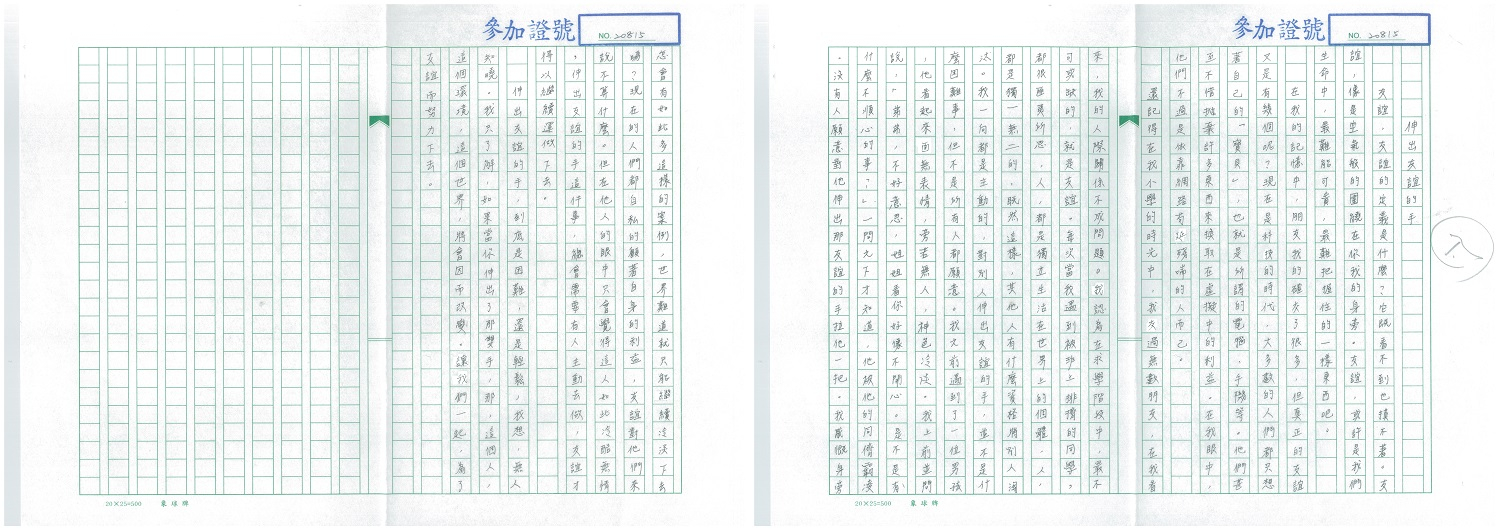 參加證號
NO. 20815
伸出友誼的手
友誼，友誼的定義是什麼？它既看不到也摸不著。友
誼，像是空氣般的圍繞在你我的身旁。友誼，或許是我們
生命中，最難能可貴，最難把握住的一樣東西吧。
在我的記憶中，朋友我的確交了很多，但真正的友誼
又是有幾個呢？現在是科技的時代，大多數的人們都只想
著自己的「寶貝」，也就是所謂的電腦、手機等。他們甚
至不惜拋棄許多東西來換取在虛擬中的利益。在我眼中，
他們不過是依靠網路苟延殘喘的人而已。
還記得在我小學的時光中，我交過無數朋友，在我看
來，我的人際關係不成問題。我認為在求學階級中，最不
可或缺的，就是友誼。每次當我遇到被班上排擠的同學，
都很匪夷所思，人，都是獨立生活在世界上的個體，人人
都是獨一無二的。既然這樣，其他人有什麼資格將別人淘
汰。我一向都是主動的，對別人伸出友誼的手，並不是什
麼困難事，但不是所有人都願意。我先前遇的了一位男孩
，他看起來面無表情，旁若無人，神色冷淡。我上前並問
說，「弟弟，不好意思，姐姐看你好像不開心。是不是有
什麼不順心的事？」一問之下才知道，他被他的同儕霸凌
。沒有人願意對他伸出那友誼的手拉他一把。我感慨身旁
參加證號
NO. 20815
怎會有如此多這樣的案例，世界難道就只能繼續冷淡下去
嗎？現在的人們都自私的顧著自身的利益，友誼對他們來
說不算什麼。但在他人的眼中只會覺得這人如此冷酷無情
，伸出友誼的手這件事，總會需要有人主動去做，友誼才
得以繼續運做下去。
伸出友誼的手，到底是困難，還是輕鬆，我想，無人
知曉。我只了解，如果當你伸出了那雙手，那，這個人，
這個環境，這個世界，將會因而改變。讓我們一起，為了
友誼而努力下去。
20×25=500 象球牌
20×25=500 象球牌